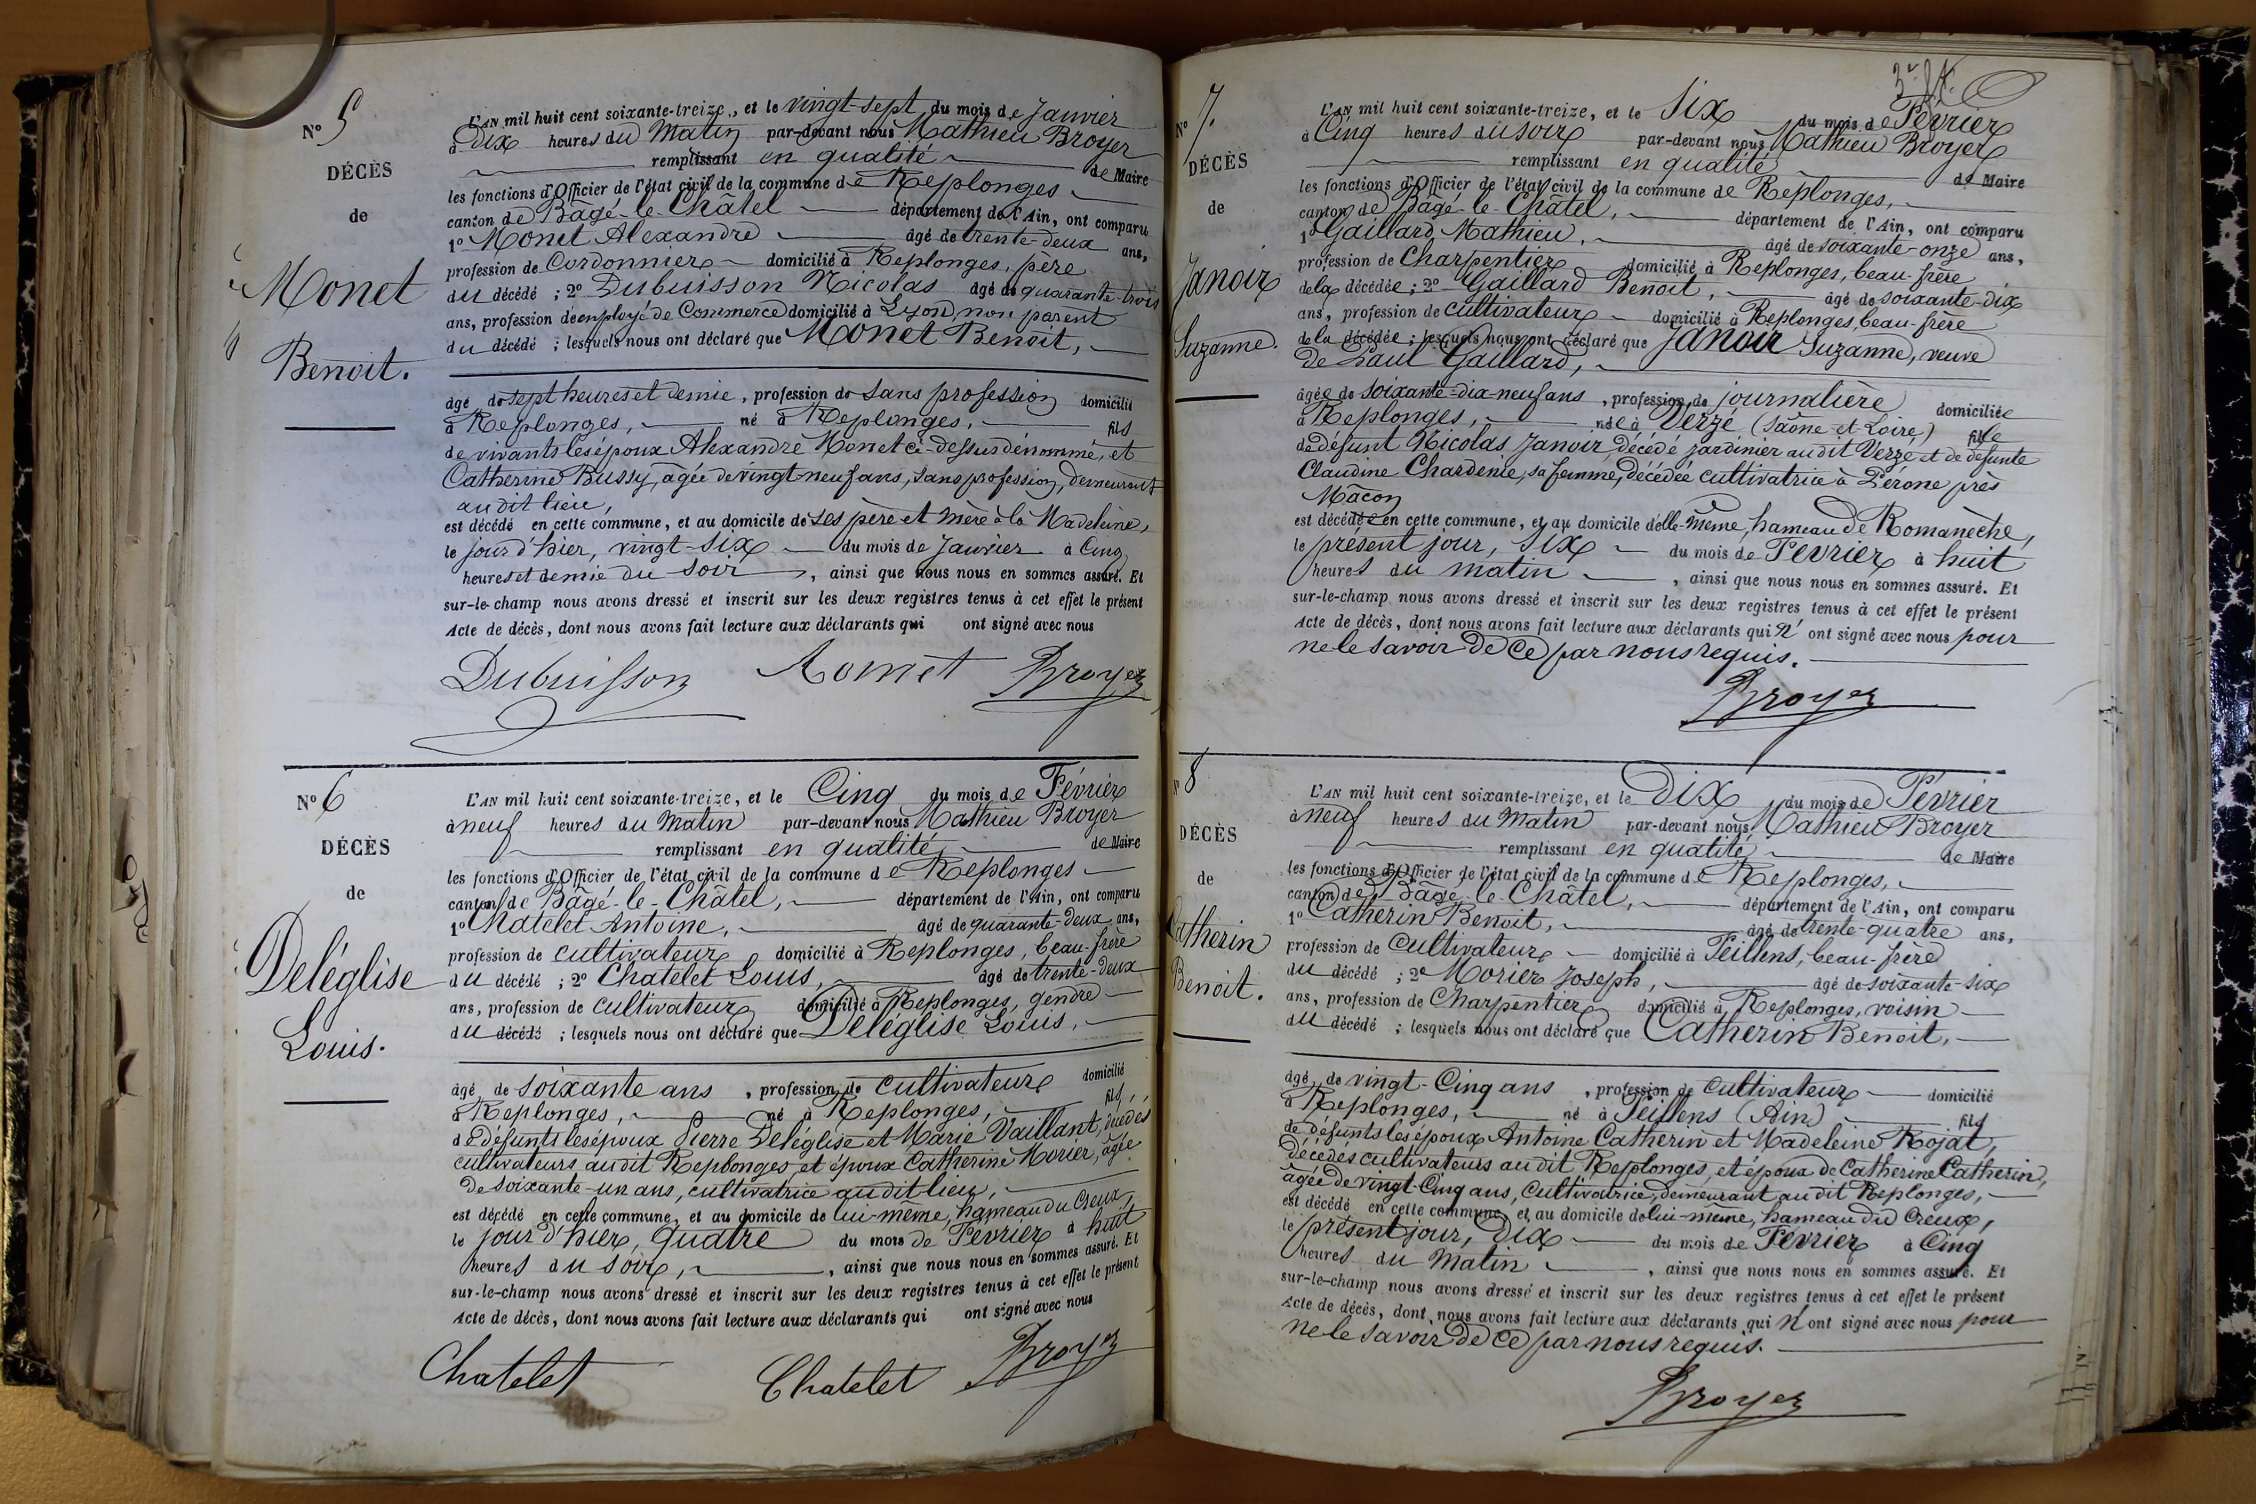 N° 5
DÉCÈS
de
Monet
Benoit.
L'AN mil huit cent soixante-treize, et le vingt-sept du mois de Janvier
à dix heures du matin par-devant nous Mathieu Broyer
remplissant en qualité de Maire
les fonctions d'Officier de l'état civil de la commune de Replonges
canton de Bâgé-le-Châtel département de l'Ain, ont comparu
1° Monet Alexandre âgé de trente-deux ans,
profession de Cordonnier domicilié à Replonges, père
du décédé ; 2° Dubuisson Nicolas âgé de quarante-trois
ans, profession de employé de Commerce domicilié à Lyon, non parent
du décédé ; lesquels nous ont déclaré que Monet Benoit,
âgé de sept heures et demie, profession de sans profession domicilié
à Replonges, né à Replonges, fils
de vivants les époux Alexandre Monet ci-dessus dénommé, et
Catherine Bussy, âgée de vingt-neuf ans, sans profession, demeurant
au dit lieu,
est décédé en cette commune, et au domicile de ses père et mère à la Madeleine,
le jour d'hier, vingt-six du mois de Janvier à Cinq
heures et demie du soir, ainsi que nous nous en sommes assuré. Et
sur-le-champ nous avons dressé et inscrit sur les deux registres tenus à cet effet le présent
Acte de décès, dont nous avons fait lecture aux déclarants qui ont signé avec nous
Dubuisson A Monet Broyer
N° 6
DÉCÈS
de
Deléglise
Louis.
L'AN mil huit cent soixante-treize, et le Cinq du mois de Février
à neuf heures du matin par-devant nous Mathieu Broyer
remplissant en qualité de Maire
les fonctions d'Officier de l'état civil de la commune de Replonges
canton de Bâgé-le-Châtel, département de l'Ain, ont comparu
1° Chatelet Antoine, âgé de quarante-deux ans,
profession de cultivateur domicilié à Replonges, beau-frère
du décédé ; 2° Chatelet Louis, âgé de trente-deux
ans, profession de cultivateur domicilié à Replonges, gendre
du décédé ; lesquels nous ont déclaré que Deléglise Louis,
âgé de soixante ans, profession de cultivateur domicilié
à Replonges, né à Replonges, fils,
de défunts les époux Pierre Deléglise et Marie Vaillant, décédés
cultivateurs audit Replonges, et époux Catherine Morier, âgée
de soixante-un ans, cultivatrice audit lieu,
est décédé en cette commune, et au domicile de lui-même, hameau du Creux,
le jour d'hier, quatre du mois de Février à huit
heures du soir, ainsi que nous nous en sommes assuré. Et
sur-le-champ nous avons dressé et inscrit sur les deux registres tenus à cet effet le présent
Acte de décès, dont nous avons fait lecture aux déclarants qui ont signé avec nous
Chatelet Chatelet Broyer
N° 7.
DÉCÈS
de
Janoir
Suzanne.
L'AN mil huit cent soixante-treize, et le Six du mois de Février
à Cinq heures du soir par-devant nous Mathieu Broyer
remplissant en qualité de Maire
les fonctions d'Officier de l'état civil de la commune de Replonges,
canton de Bâgé-le-Châtel, département de l'Ain, ont comparu
1° Gaillard Mathieu, âgé de soixante-onze ans,
profession de Charpentier domicilié à Replonges, beau-frère
de la décédée ; 2° Gaillard Benoit, âgé de soixante-dix
ans, profession de cultivateur domicilié à Replonges, beau-frère
de la décédée ; lesquels nous ont déclaré que Janoir Suzanne, veuve
de Paul Gaillard,
âgée de soixante-dix-neuf ans, profession de journalière domiciliée
à Replonges, née à Verzé (Saône-et-Loire) fille
de défunt Nicolas Janoir, décédé jardinier audit Verzé et de défunte
Claudine Chardenie, sa femme, décédée cultivatrice à Pérone près
Mâcon
est décédée en cette commune, et au domicile d'elle-même, hameau de Romanèche,
le présent jour, six du mois de Février à huit
heures du matin, ainsi que nous nous en sommes assuré. Et
sur-le-champ nous avons dressé et inscrit sur les deux registres tenus à cet effet le présent
Acte de décès, dont nous avons fait lecture aux déclarants qui n'ont signé avec nous pour
ne le savoir de ce par nous requis.
Broyer
N° 8
DÉCÈS
de
Catherin
Benoit.
L'AN mil huit cent soixante-treize, et le Dix du mois de Février
à neuf heures du matin par-devant nous Mathieu Broyer
remplissant en qualité de Maire
les fonctions d'Officier de l'état civil de la commune de Replonges,
canton de Bâgé-le-Châtel, département de l'Ain, ont comparu
1° Catherin Benoit, âgé de trente-quatre ans,
profession de cultivateur domicilié à Feillens, beau-frère
du décédé ; 2° Morier Joseph, âgé de soixante-six
ans, profession de Charpentier domicilié à Replonges, voisin
du décédé ; lesquels nous ont déclaré que Catherin Benoit,
âgé de vingt-Cinq ans, profession de cultivateur domicilié
à Replonges, né à Feillens (Ain) fils
de défunts les époux Antoine Catherin et Madeleine Rojat,
décédés cultivateurs au dit Replonges, et époux de Catherine Catherin,
âgée de vingt-Cinq ans, Cultivatrice, demeurant au dit Replonges,
est décédé en cette commune, et au domicile de lui-même, hameau du Creux,
le présent jour, dix du mois de Février à Cinq
heures du matin, ainsi que nous nous en sommes assuré. Et
sur-le-champ nous avons dressé et inscrit sur les deux registres tenus à cet effet le présent
Acte de décès, dont nous avons fait lecture aux déclarants qui n'ont signé avec nous pour
ne le savoir de ce par nous requis.
Broyer